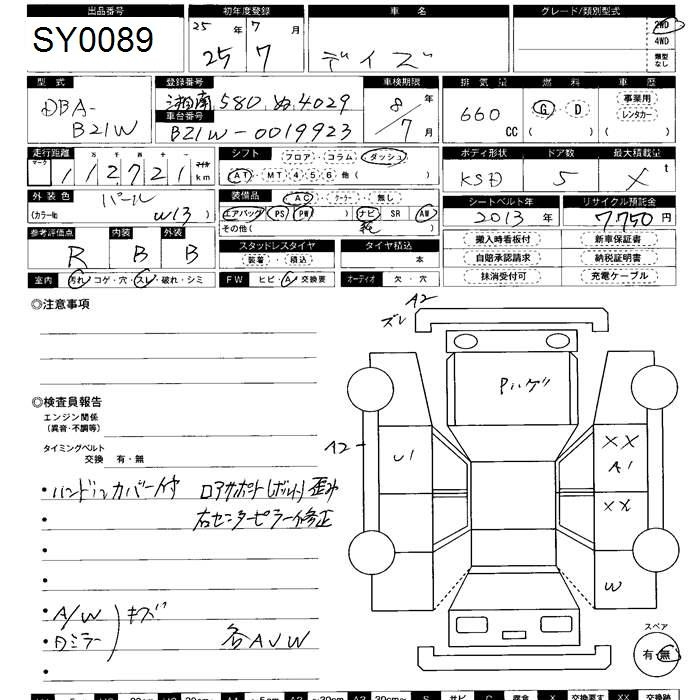 出品番号 初年度登録 車名 グレード/類別型式
SY0089 25年 7月 2WD
25 7 デイズ 4WD
類型なし
型式 登録番号 車検期限 排気量 燃料 車歴
DBA- 湘南 580 ぬ 4029 8年 660 CC G・D ( ) 事業用
B21W 車台番号 7月 レンタカー ( )
B21W-0019923
走行距離 シフト フロア・コラム・ダッシュ ボディ形状 ドア数 最大積載量
マーク 十 万 千 百 マイル
112721 km AT・MT 4 5 6 他( ) KSD 5 X t
外装色 パール 装備品 AC・クーラー・無し シートベルト年 リサイクル預託金
(カラーNo W13 ) エアバッグ( )PS PW ナビ SR AW 2013年 7,750円
その他( )
参考評価点 内装 外装 スタッドレスタイヤ タイヤ積込 搬入時看板付 新車保証書
R B B 装着・積込 本 自賠承認請求 納税証明書
室内 汚れ・コゲ・穴・スレ・破れ・シミ FW ヒビ・A・交換要 オーディオ 欠・穴 抹消受付可 充電ケーブル
◎注意事項
A2
ズレ
Pハゲ
◎検査員報告
エンジン関係
(異音・不調等)
タイミングベルト
交換 有・無
A2
U1
XX
A1
XX
W
・ハンドルカバー付 ロアサポート(ボルト)歪み
・右センターピラー修正
・
・
・A/W キズ
・Dミラー 各AUW
・
スペア
有・無